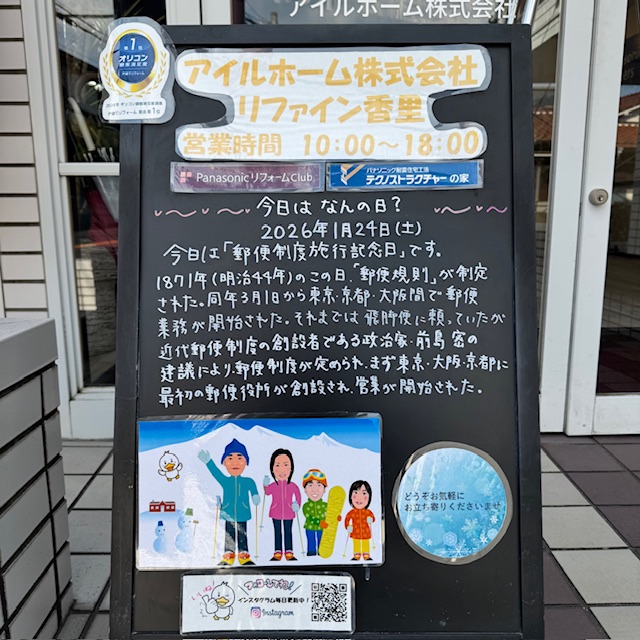 アイルホーム株式会社
第1位
オリコン
顧客満足度
戸建リフォーム
アイルホーム株式会社
リファイン香里
営業時間 10:00～18:00
PanasonicリフォームClub
パナソニック耐震住宅工法
テクノストラクチャーの家
今日は なんの日？
2026年1月24日(土)
今日は「郵便制度施行記念日」です。
1871年(明治44年)のこの日「郵便規則」が制定
された。同年3月1日から東京・京都・大阪間で郵便
業務が開始された。それまでは飛脚便に頼っていたが
近代郵便制度の創設者である政治家・前島 密の
建議により、郵便制度が定められ、まず東京・大阪・京都に
最初の郵便役所が創設され、営業が開始された。
どうぞお気軽に
お立ち寄りくださいませ
いいね!
フォローしてね!
インスタグラム毎日更新中!
Instagram